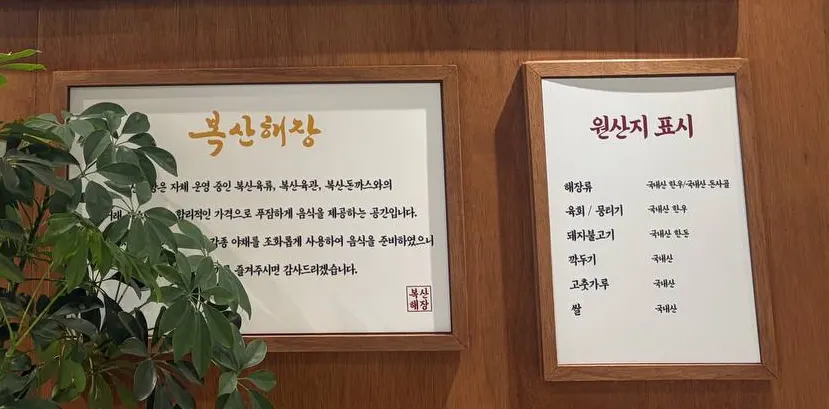 복산해장
자체 운영 중인 복산육류, 복산육관, 복산돈까스와의
합리적인 가격으로 푸짐하게 음식을 제공하는 공간입니다.
각종 야채를 조화롭게 사용하여 음식을 준비하였으니
즐겨주시면 감사드리겠습니다.
복산
해장
원산지 표시
해장류 국내산 한우/국내산 돈사골
육회 / 뭉티기 국내산 한우
돼지불고기 국내산 한돈
깍두기 국내산
고춧가루 국내산
쌀 국내산